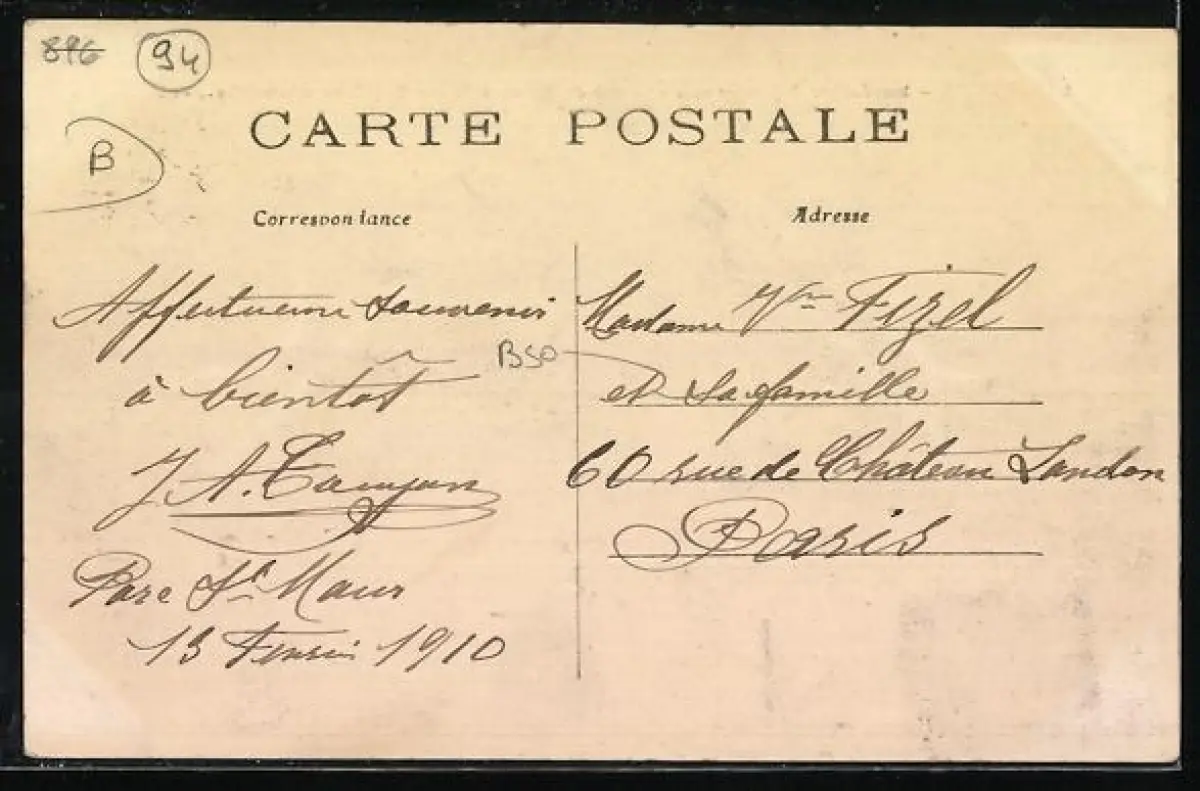 896
94
B
CARTE POSTALE
Correspondance
Adresse
Affectueux souvenir
à bientôt
J. A.
Parc St Maur
13 Février 1910
B50
Madame Vve Fizel
et sa famille
60 rue de Château Landon
Paris